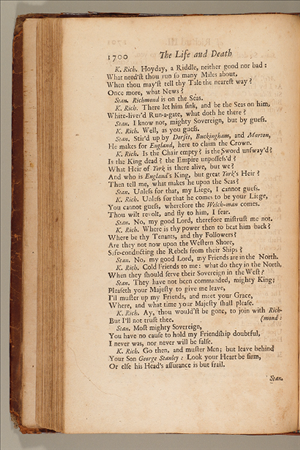 1700 The Life and Death
K. Rich. Hoyday, a Riddle, neither good nor bad:
What need'st thou run so many Miles about,
When thou may'st tell thy Tale the nearest way?
Once more, what News?
Stan. Richmond is on the Seas.
K. Rich. There let him sink, and be the Seas on him,
White-liver'd Run-a-gate, what doth he there?
Stan. I know not, mighty Sovereign, but by guess.
K. Rich. Well, as you guess.
Stan. Stir'd up by Dorset, Buckingham, and Morton,
He makes for England, here to claim the Crown.
K. Rich. Is the Chair empty? is the Sword unsway'd?
Is the King dead? the Empire unpossess'd?
What Heir of York is there alive, but we?
And who is England's King, but great York's Heir?
Then tell me, what makes he upon the Seas?
Stan. Unless for that, my Liege, I cannot guess.
K. Rich. Unless for that he comes to be your Liege,
You cannot guess, wherefore the Welch-man comes.
Thou wilt revolt, and fly to him, I fear.
Stan. No, my good Lord, therefore mistrust me not.
K. Rich. Where is thy power then to beat him back?
Where be thy Tenants, and thy Followers?
Are they not now upon the Western Shore,
Safe-conducting the Rebels from their Ships?
Stan. No, my good Lord, my Friends are in the North.
K. Rich. Cold Friends to me: what do they in the North,
When they should serve their Sovereign in the West?
Stan. They have not been commanded, mighty King;
Pleaseth your Majesty to give me leave,
I'll muster up my Friends, and meet your Grace,
Where, and what time your Majesty shall please.
K. Rich. Ay, thou would'st be gone, to join with Rich-
But I'll not trust thee. (mond:
Stan. Most mighty Sovereign,
You have no cause to hold my Friendship doubtful,
I never was, nor never will be false.
K. Rich. Go then, and muster Men; but leave behind
Your Son George Stanley: Look your Heart be firm,
Or else his Head's assurance is but frail.
Stan.